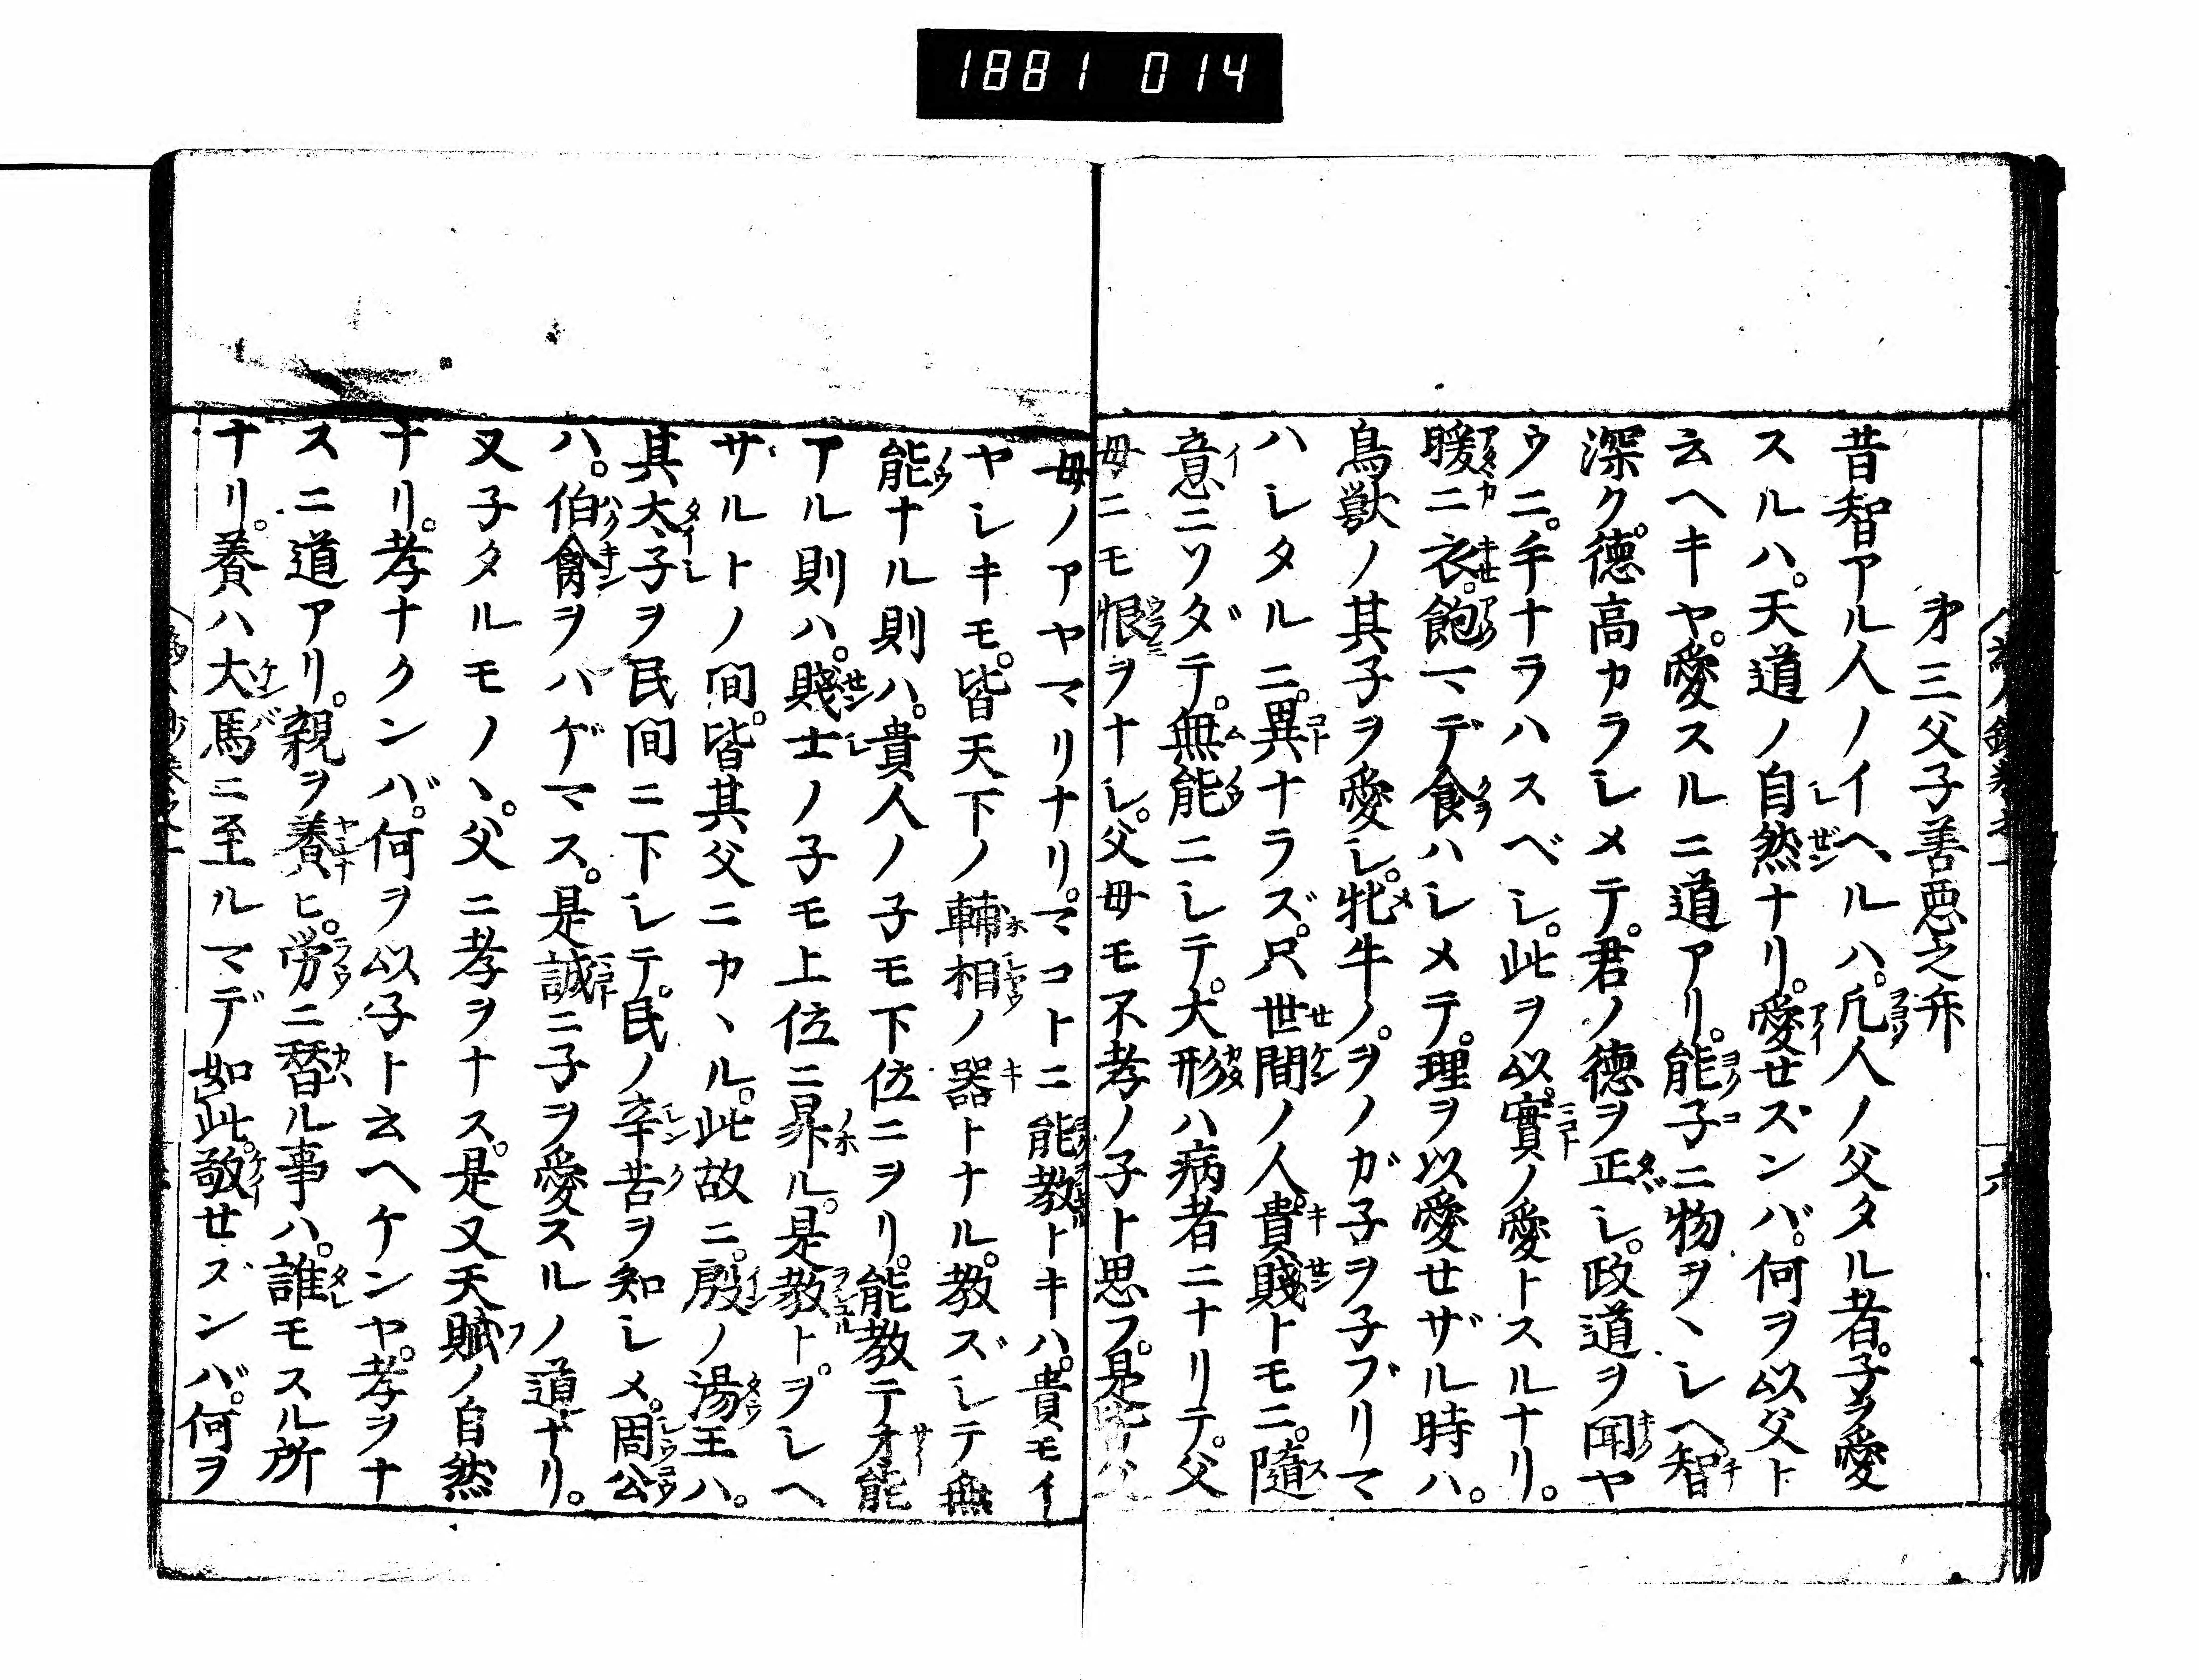 1881 014
才三父子善悪之弁
昔智アル人ノイヘルハ。凡人ノ父タル者。子ヲ愛
スルハ。天道ノ自然ナリ。愛せズンバ。何ヲ以父ト
云ヘキヤ。愛スルニ道アリ。能子ニ物ヲヽシヘ。智
深ク。徳高カラシメテ。君ノ徳ヲ正シ。政道ヲ聞ヤ
ウニ。手ナラハスベシ。此ヲ以。實ノ愛トスルナリ。
暖ニ衣。飽マデ食ハシメテ。理ヲ以愛せザル時ハ。
鳥獣ノ其子ヲ愛シ。牝牛ノ。ヲノガ子ヲ子ブリマ
ハシタルニ。異ナラズ。尺世間ノ人。貴賤トモニ。隨
意ニソダテ。無能ニシテ。犬形ハ病者ニナリテ。父
母ニモ恨ヲナシ。父母モ不孝ノ子ト思フ。是
母ノアヤマリナリ。マコトニ能教ドキハ。貴モイ
ヤシキモ。皆天下ノ輔相ノ器トナル。教ズシテ無
能ナル則ハ。貴人ノ子モ下位ニヲリ。能教テ才能
アル則ハ。賤士ノ子モ上位ニ昇ル。是教トヲシヘ
サルトノ間。皆其父ニカヽル。此故ニ。殷ノ湯王ハ。
其太子ヲ民間ニ下シテ。民ノ辛苦ヲ知シメ。周公
ハ。伯禽ヲハゲマス。是誠ニ子ヲ愛スルノ道ナリ。
又子タルモノヽ。父ニ孝ヲナス。是又天賦ノ自然
ナリ。孝ナクンバ。何ヲ以子ト云ヘケンヤ。孝ヲナ
スニ道アリ。親ヲ養ヒ。労ニ替ル事ハ。誰モスル所
ナリ。養ハ犬馬ニ至ルマデ如此。敬せズンバ。何ヲ